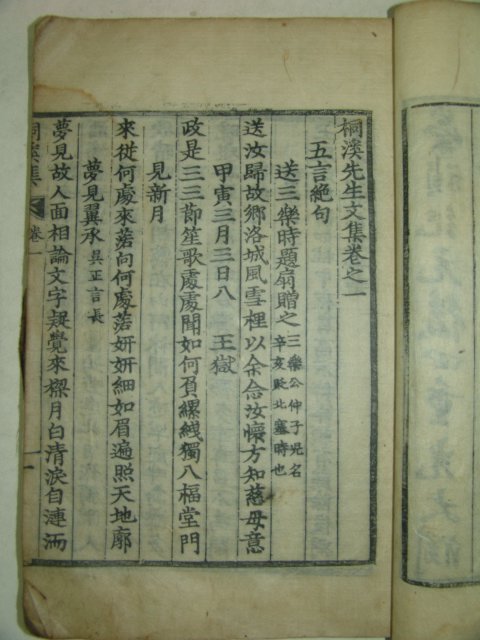 桐溪先生文集卷之一
五言絶句
送三樂時題扇贈之 三樂公仲子兒名
辛亥貶北塞時也
送汝歸故鄉洛城風雪裡以余念汝懷方知慈母意
甲寅三月三日入王獄
政是三三節笙歌處處聞如何負縲絏獨入福堂門
見新月
來從何處來落向何處落姸姸細如眉遍照天地廓
夢見翼承 吳正言長
夢見故人面相論文字疑覺來樑月白清淚自漣洏
桐溪集
卷一
一